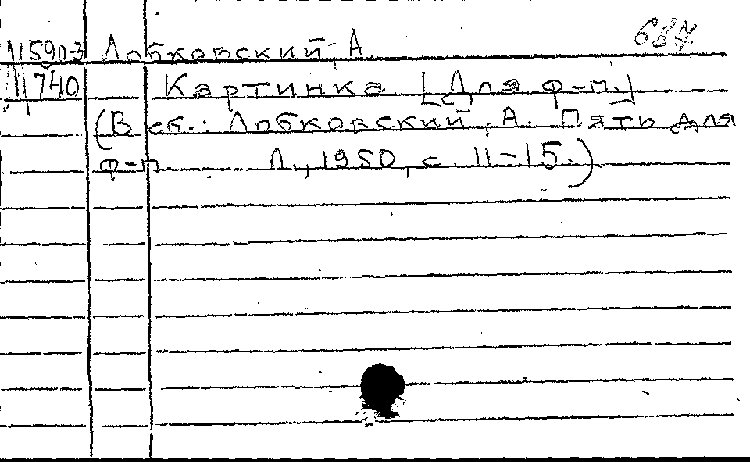 637
11590-3 Лобковский, А.
11740 Картинка [Для ф-п.]
(В сб.: Лобковский, А. Пять для
ф-п Л., 1950, с. 11-15.)